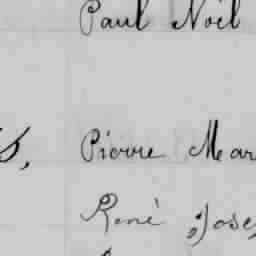 Paul Noël
S, Pierre Mar
René Jose